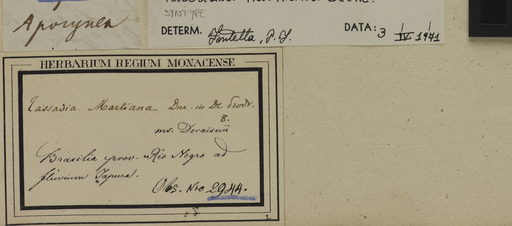 Apocynea
SYNTYPE
DETERM. Fontella, P. J. DATA: 3 / IV / 1941
HERBARIUM REGIUM MONACENSE
Tassadia Martiana Dne. in Dc. Prodr.
8.
ms. Decaisnii
Brasilia prov. Rio Negro ad
fluvium Japura.
Obs. Nro 2944.